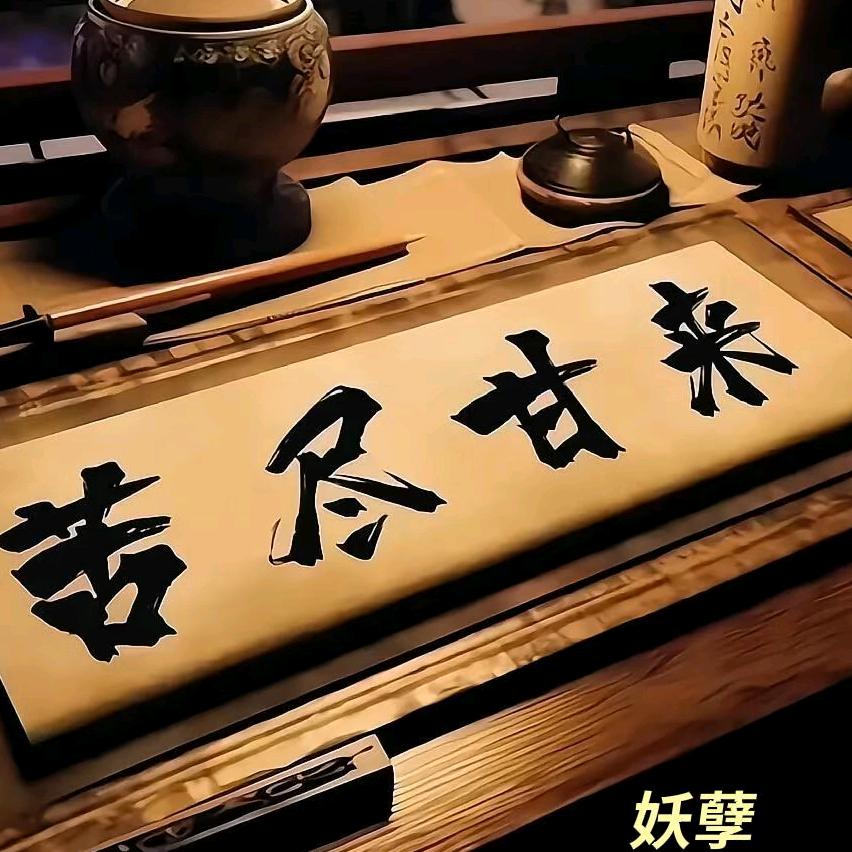 苦尽甘来
妖孽